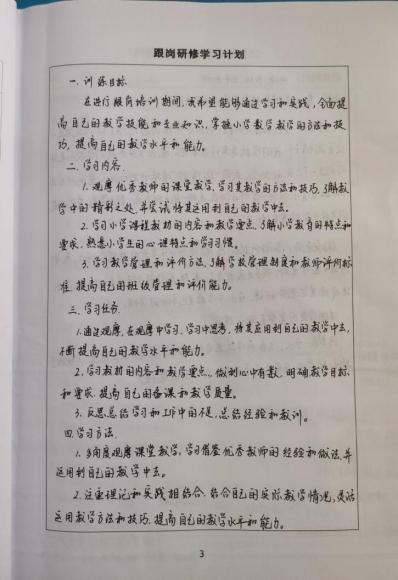 跟岗研修学习计划
一. 训练目标
在进行跟岗培训期间,我希望能够通过学习和实践,全面提
高自己的教学技能和专业知识,掌握小学数学教学的方法和技
巧,提高自己的教学水平和能力。
二. 学习内容
1. 观摩优秀教师的课堂教学,学习其教学的方法和技巧,了解教
学中的精彩之处,并尝试将其运用到自己的教学中去。
2. 学习小学课程教材的内容和教学要点,了解小学教育的特点和
要求,熟悉小学生的心理特点和学习习惯。
3. 学习教学管理和评价方法,了解学校管理制度和教师评价标
准,提高自己的班级管理和评价能力。
三. 学习任务
1. 通过观摩,在观摩中学习,学习中思考,将其应用到自己的教学中去,
不断提高自己的教学水平和能力。
2. 学习教材的内容和教学要点,做到心中有数,明确教学目标
和要求,提高自己的备课和教学质量。
3. 反思总结学习和工作中的不足,总结经验和教训。
四. 学习方法
1. 多角度观摩课堂教学,学习借鉴优秀教师的经验和做法,并
运用到自己的教学中去。
2. 注重理论和实践相结合,结合自己的实际教学情况,灵活
运用教学方法和技巧,提高自己的教学水平和能力。
3